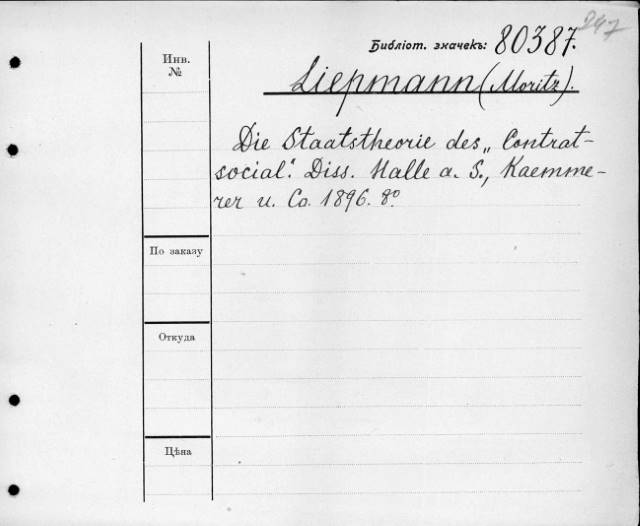 247
Библіот. значекъ: 80387.
Инв.
№
Liepmann (Moritz).
Die Staatstheorie des „Contrat-
social“. Diss. Halle a. S., Kaemme-
rer u. Co. 1896. 8º
По заказу
Откуда
Цѣна